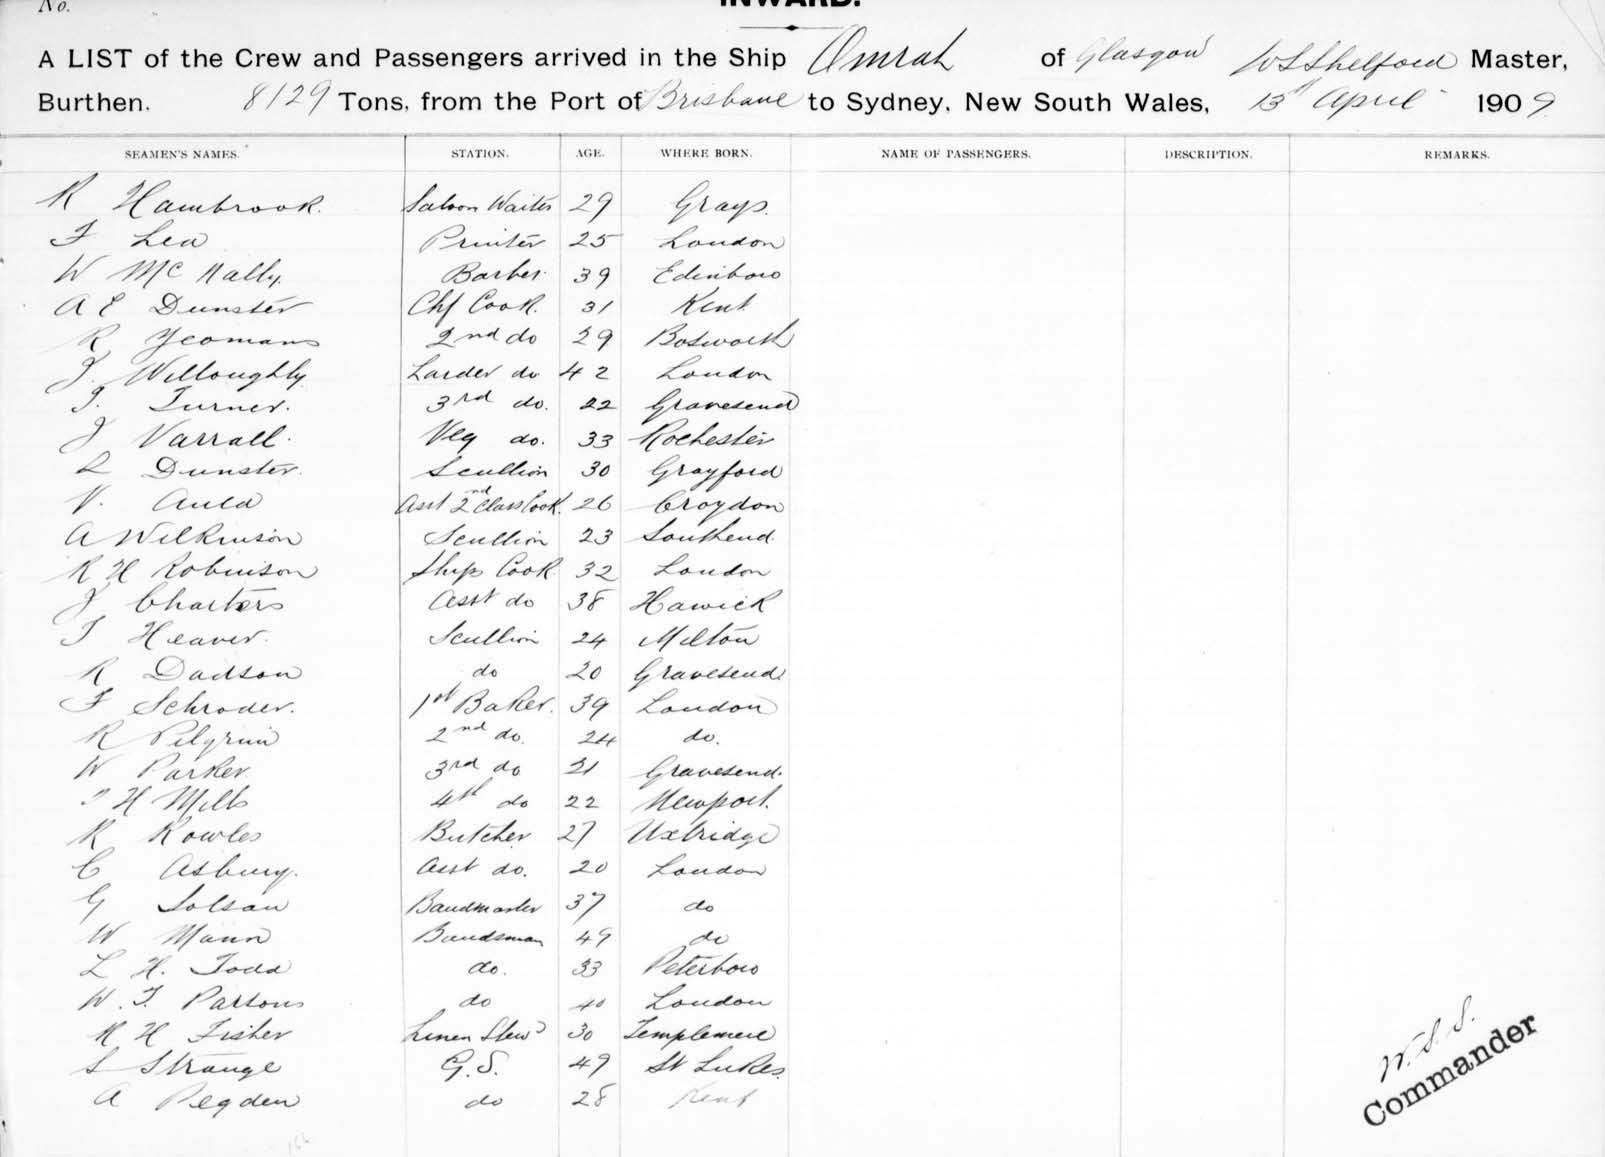 No.
INWARD.
A LIST of the Crew and Passengers arrived in the Ship Omrah of Glasgow W S Shelford Master,
Burthen. 8129 Tons, from the Port of Brisbane to Sydney, New South Wales, 13th April 1909
SEAMEN'S NAMES. STATION. AGE. WHERE BORN. NAME OF PASSENGERS. DESCRIPTION. REMARKS.
R Hambrook. Saloon Waiter 29 Grays.
F Lea Printer 25 London
W McNally. Barber 39 Edinboro
A E Dunster Chf Cook. 31 Kent
R Yeomans 2nd do 29 Bosworth
J. Willoughby. Larder do 42 London
T. Turner. 3rd do. 22 Gravesend
J Varrall. Veg do. 33 Rochester
R Dunster. Scullion 30 Grayford
V. Auld Asst 2nd Class Cook. 26 Croydon
A Wilkinson Scullion 23 Southend.
R H Robinson Ships Cook 32 London
J Charters Asst do 38 Hawick
T Heaver. Scullion 24 Milton
R Dadson do 20 Gravesend
F Schroder. 1st Baker. 39 London
R Pilgrim 2nd do. 24 do.
W Parker. 3rd do 21 Gravesend.
H Mills 4th do 22 Newport.
R Rowles Butcher 27 Uxbridge
C Asbury. Asst do. 20 London
G Solsau Bandmaster 37 do
W Mann Bandsman 49 do
L H. Todd do. 33 Peterboro
W. T. Parsons do 40 London
R H Fisher Linen Stewd 30 Templemere
S Strange G.S. 49 St Lukes.
A Pegden do 28 Kent
W.S.S.
Commander
166